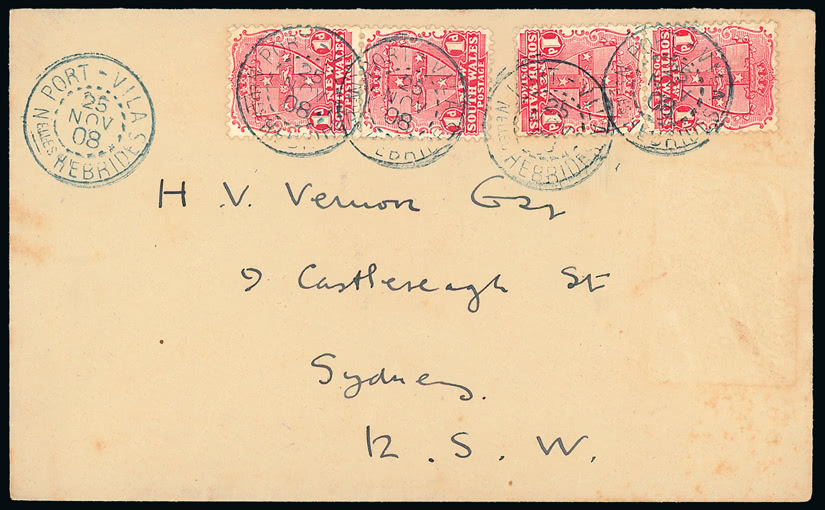 PORT - VILA
25
NOV
08
Nelles HEBRIDES
NEW
SOUTH WALES
POSTAGE
1D
H V. Vernon Esq
9 Castlereagh St
Sydney.
N. S. W.